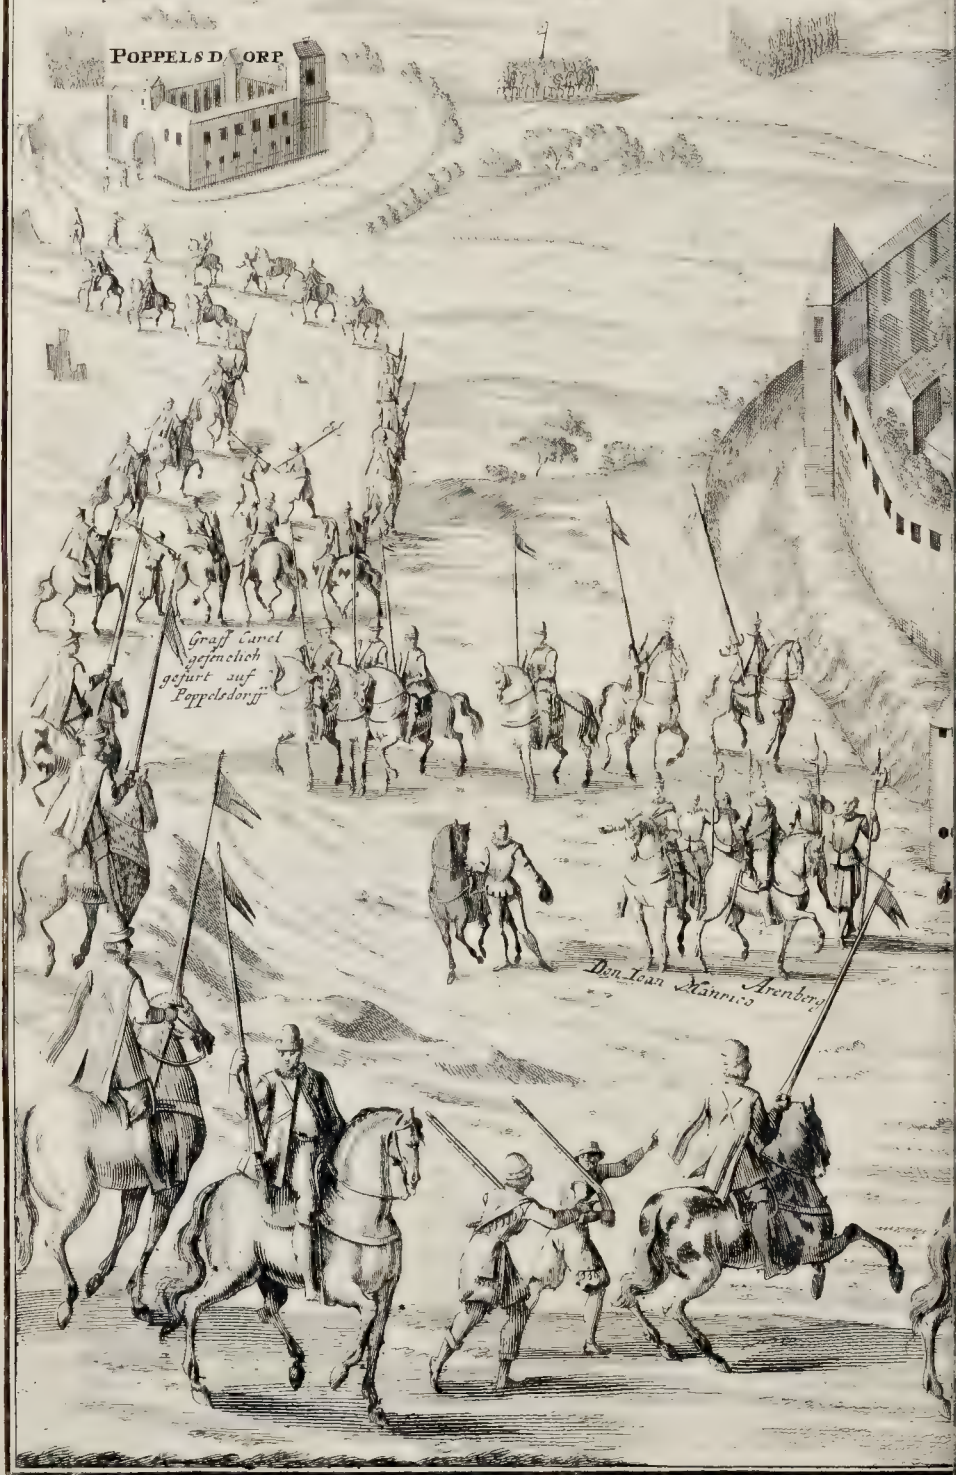 POPPELSDORP
Graff Carel
gefenclich
gefurt auf
Poppelsdorff
Don Ioan Manrico Arenberg